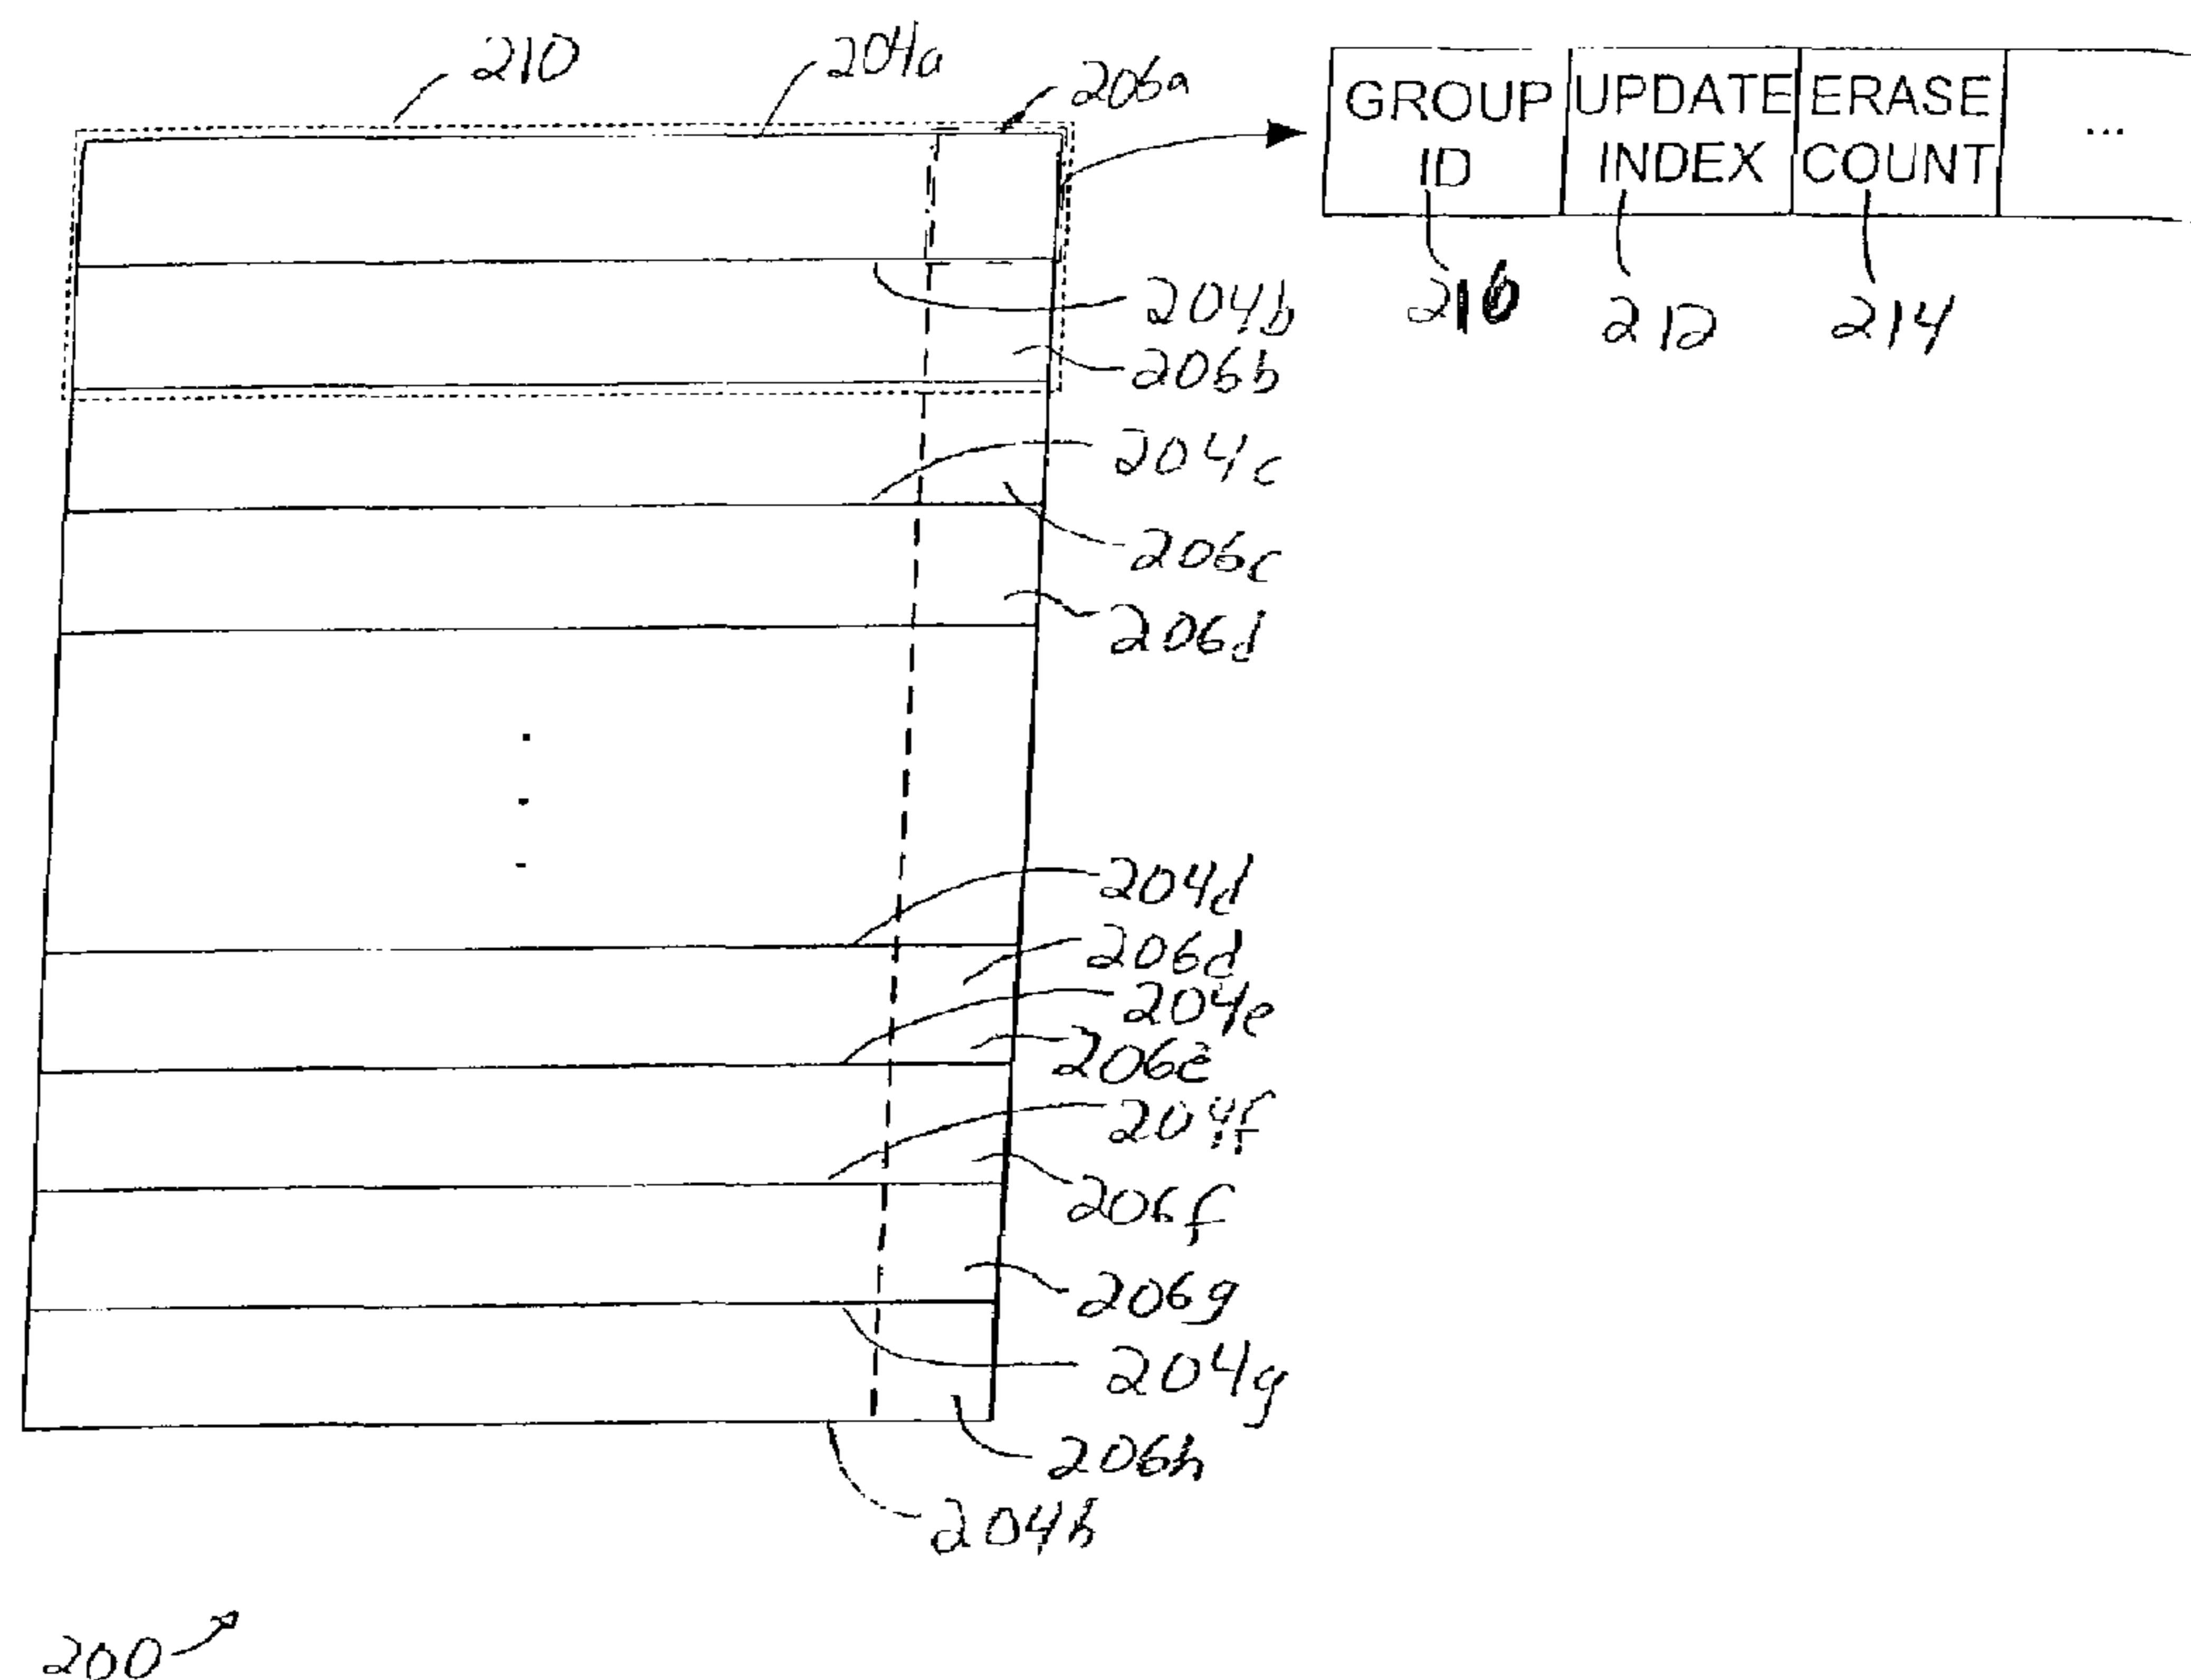 210
204a
206a
GROUP ID
UPDATE INDEX
ERASE COUNT
...
216
212
214
204b
206b
204c
206c
206d
204d
206d
204e
206e
204f
206f
206g
204g
206h
204h
200